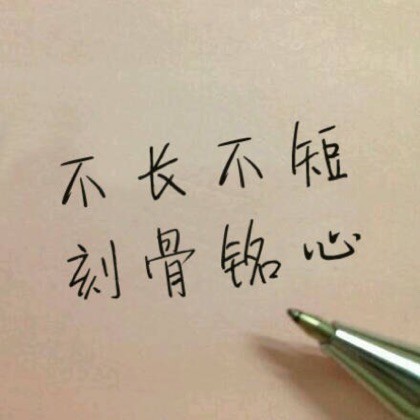 不长不短
刻骨铭心